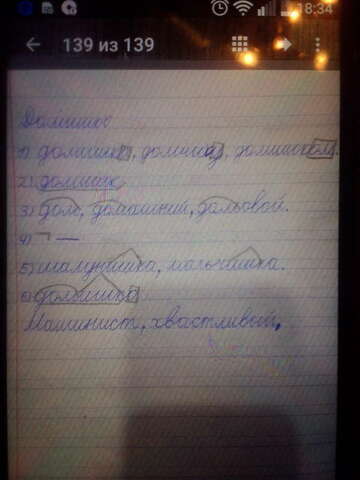 18:34
139 из 139
Домишко
1) домишко, домишка, домишком.
2) домишк
3) дом, домашний, домовой.
4) ¬ —
5) шалунишка, мальчишка.
6) домишко
Машинист, хвастливый,